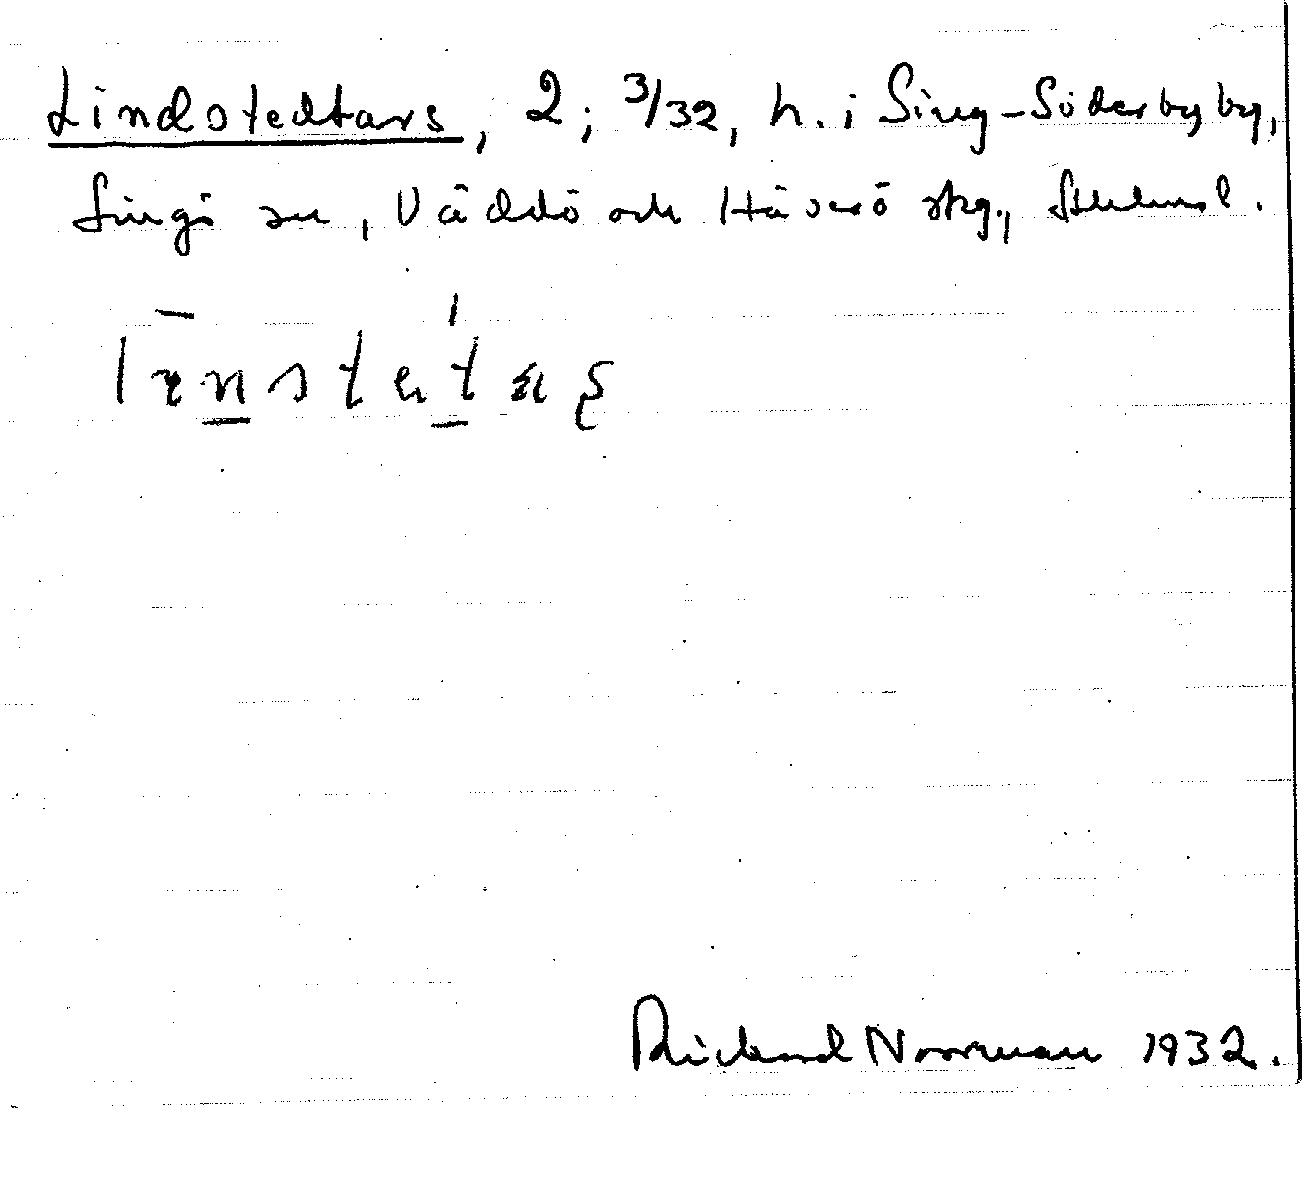 Lindstedtars, 2; 3/32, h. i Sing-Söderby by,
Singö sn, Väddö och Häverö skg., Sthlms l.
Richard Norrman 1932.